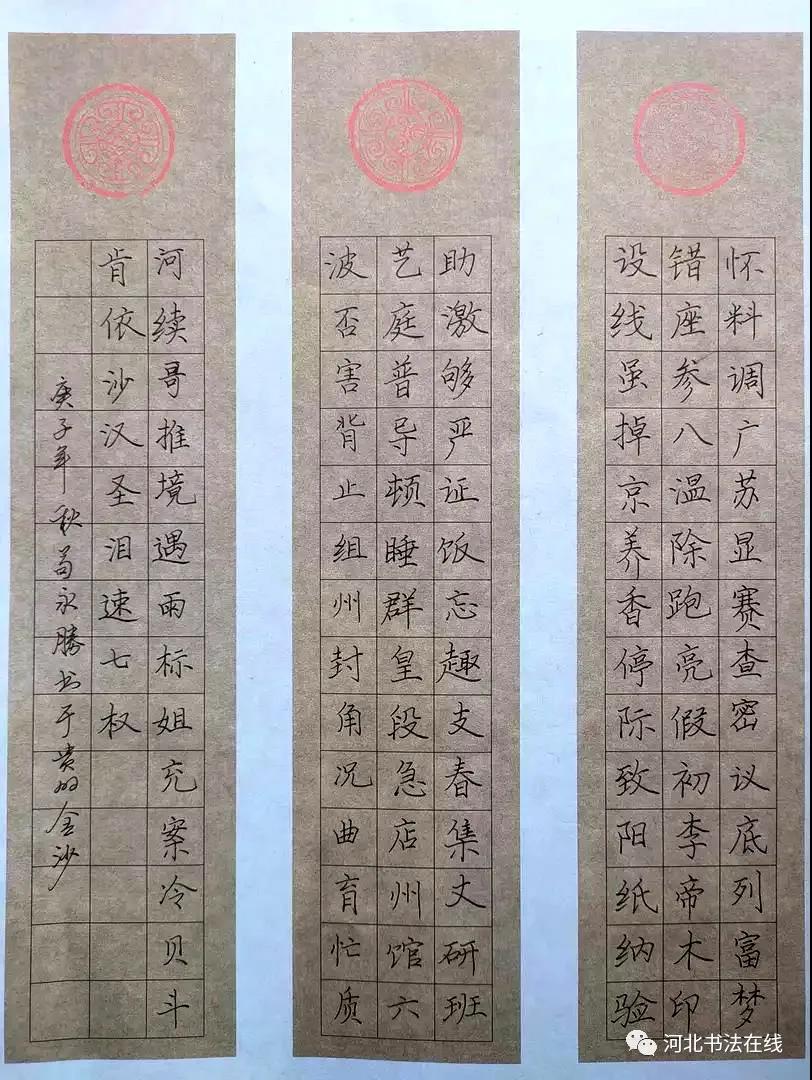 怀料调广苏显赛查密议底列富梦
错座参八温除跑亮假初李帝木印
设线虽掉京养香停际致阳纸纳验
助激够严证饭忘趣支春集丈研班
艺庭普导顿睡群皇段急店州馆六
波否害背止组州封角况曲育忙质
河续哥推境遇雨标姐充案冷贝斗
肯依沙汉圣泪速七权
庚子年秋苟永胜书于贵州金沙
河北书法在线